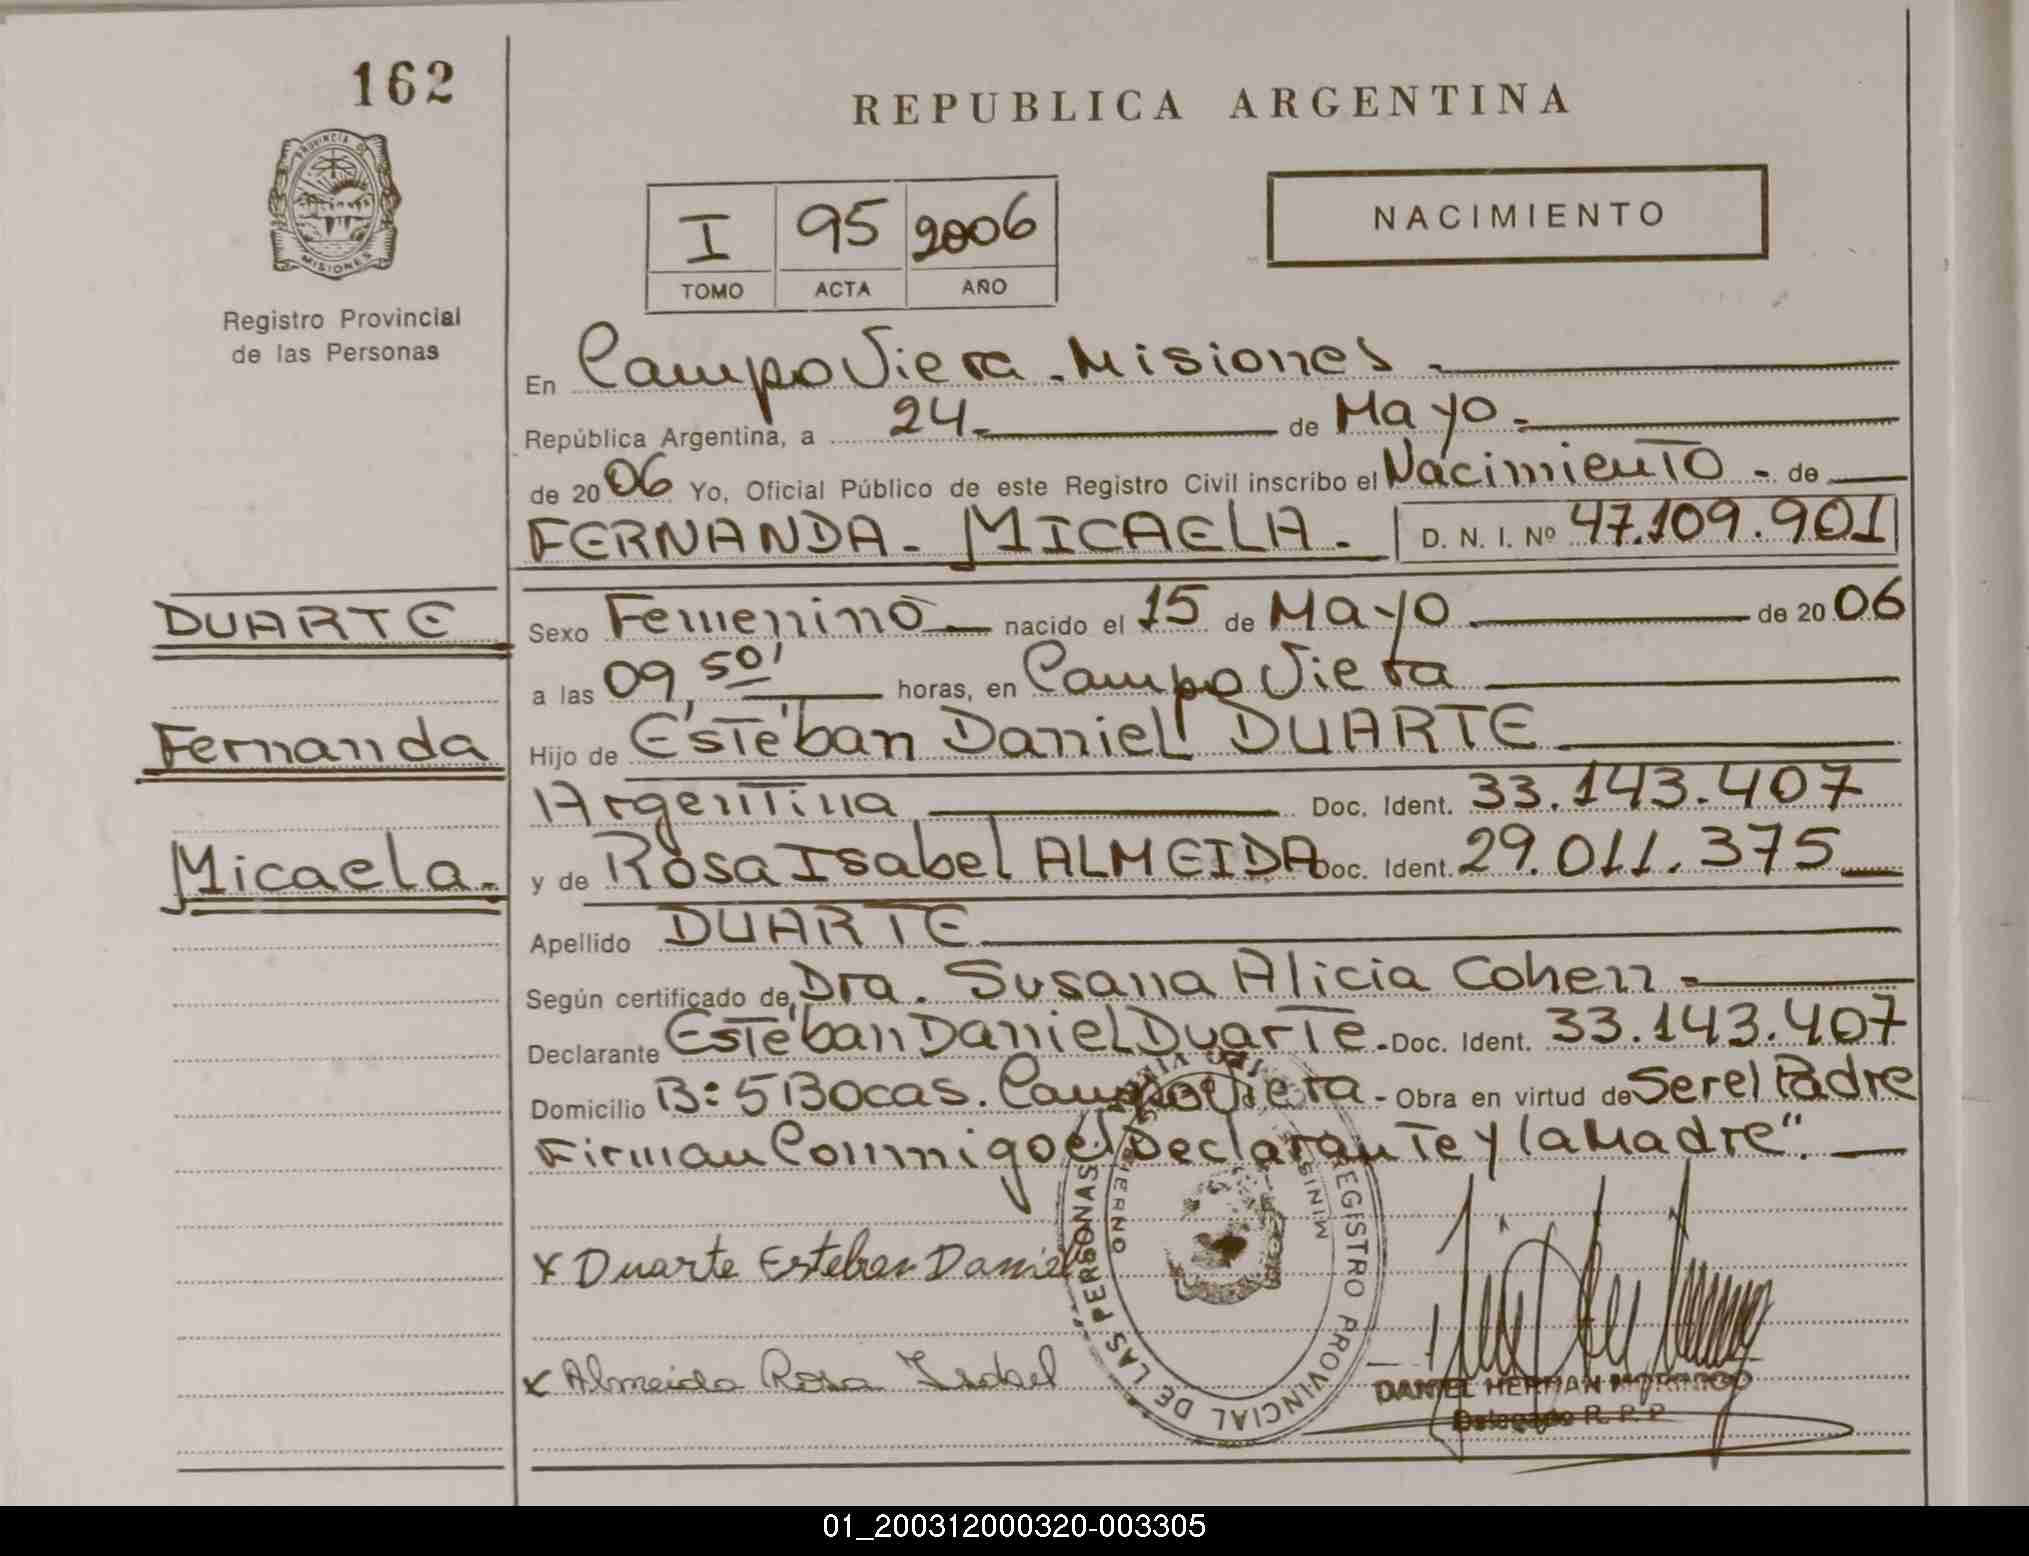 162
PROVINCIA DE
MISIONES
Registro Provincial
de las Personas
REPUBLICA ARGENTINA
I 95 2006
TOMO ACTA AÑO
NACIMIENTO
En Campo Viera - Misiones -
República Argentina, a 24 - de Mayo -
de 2006 Yo, Oficial Público de este Registro Civil inscribo el Nacimiento - de
FERNANDA - MICAELA - D. N. I. Nº 47.109.901
DUARTE
Fernanda
Micaela -
Sexo Femenino nacido el 15 de Mayo de 2006
a las 09,50' horas, en Campo Viera
Hijo de Estéban Daniel DUARTE
Argentina Doc. Ident. 33.143.407
y de Rosa Isabel ALMEIDA Doc. Ident. 29.011.375
Apellido DUARTE
Según certificado de Dra. Susana Alicia Cohen -
Declarante Estéban Daniel Duarte - Doc. Ident. 33.143.407
Domicilio B: 5 Bocas. Campo Viera - Obra en virtud de Ser el Padre
Firman Conmigo el Declarante y la Madre".
x Duarte Esteban Daniel
x Almeida Rosa Isabel
REGISTRO PROVINCIAL DE LAS PERSONAS
DANIEL HERNAN
Delegado R. P. P.
01_200312000320-003305